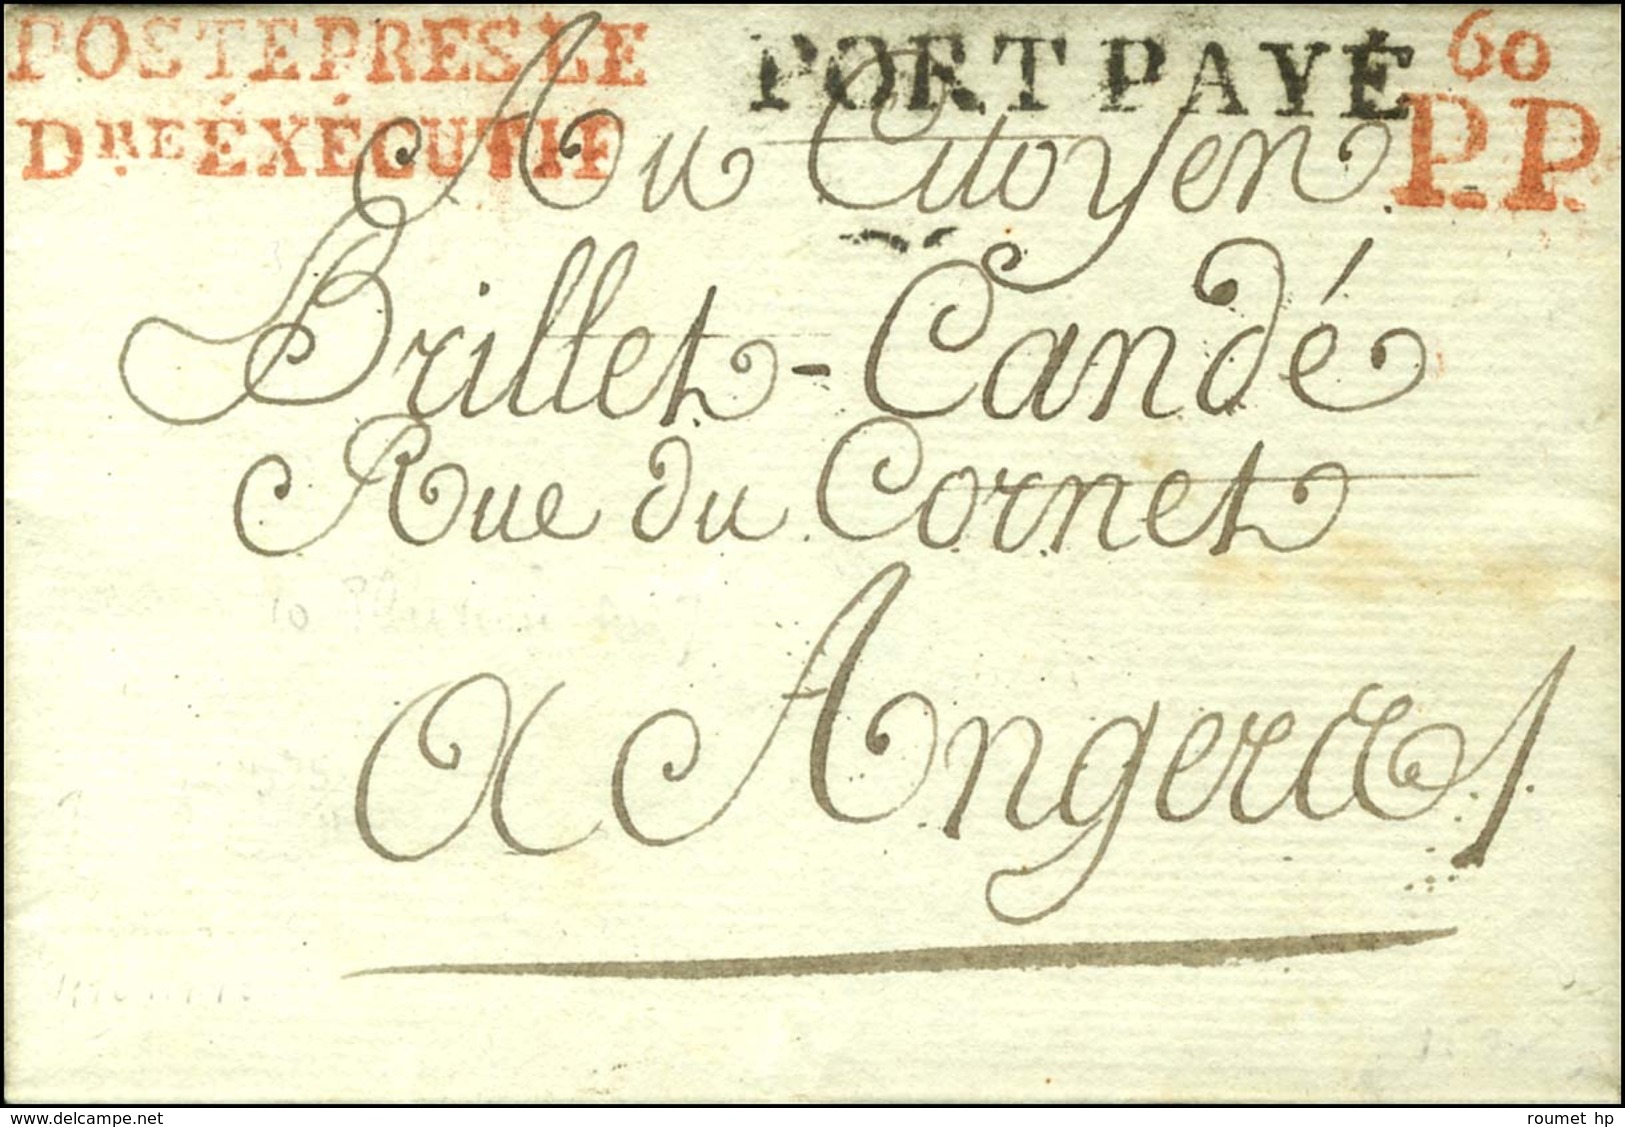 POSTE PRES LE
DRE ÉXÉCUTIF
PORT PAYÉ
60
P.P.
Au Citoyen
Brillet-Candé
Rue du Cornet
a Angers
www.delcampe.net
roumet hp